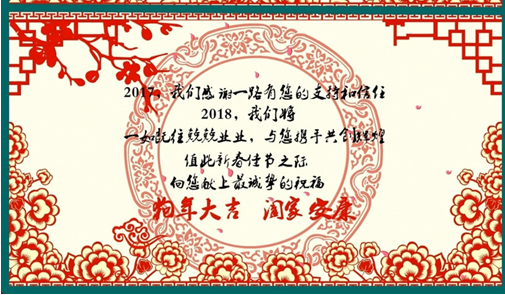 2017，我们感谢一路有您的支持和信任
2018，我们将
一如既往兢兢业业，与您携手共创辉煌
值此新春佳节之际
向您献上最诚挚的祝福
狗年大吉 阖家安康